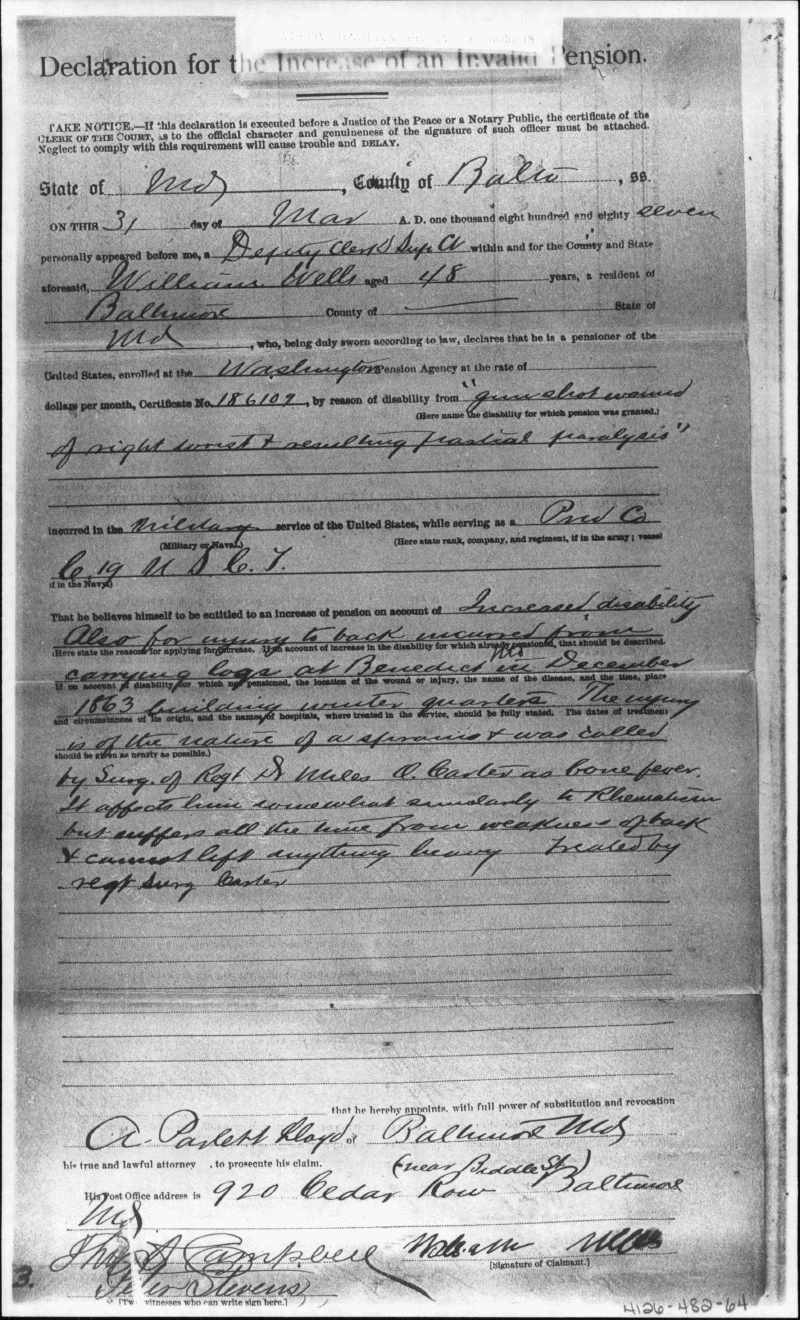 Declaration for the Increase of an Invalid Pension.
TAKE NOTICE.—If this declaration is executed before a Justice of the Peace or a Notary Public, the certificate of the
CLERK OF THE COURT, as to the official character and genuineness of the signature of such officer must be attached.
Neglect to comply with this requirement will cause trouble and DELAY.
State of Md, County of Balto, SS.
ON THIS 31 day of Mar A. D. one thousand eight hundred and eighty seven
personally appeared before me, a Deputy Clerk Sup Ct within and for the County and State
aforesaid, William Wells aged 48 years, a resident of
Baltimore County of State of
Md, who, being duly sworn according to law, declares that he is a pensioner of the
United States, enrolled at the Washington Pension Agency at the rate of
dollars per month, Certificate No. 186109, by reason of disability from "gun shot wound
(Here name the disability for which pension was granted.)
of right wrist & resulting partial paralysis"
incurred in the Military service of the United States, while serving as a Priv Co
(Military or Naval.) (Here state rank, company, and regiment, if in the army; vessel
C. 19 U. S. C. T.
if in the Navy)
That he believes himself to be entitled to an increase of pension on account of Increased disability
Also for injury to back incurred from
(Here state the reasons for applying for increase. If on account of increase in the disability for which already pensioned, that should be described.
carrying logs at Benedict Md in December
If on account of disability for which not pensioned, the location of the wound or injury, the name of the disease, and the time, place
1863 building winter quarters. The injury
and circumstances of its origin, and the names of hospitals, where treated in the service, should be fully stated. The dates of treatment
is of the nature of a sprain & was called
should be given as nearly as possible.)
by Surg. of Regt Dr Miles O. Carter as bone fever.
It affects him somewhat similarly to Rhematism
but suffers all the time from weakness of back
& cannot lift anything heavy Treated by
regt Surg Carter
that he hereby appoints, with full power of substitution and revocation
A. Parlett Lloyd, of Baltimore Md
his true and lawful attorney, to prosecute his claim. (near Biddle St)
His Post Office address is 920 Cedar Row Baltimore
Md
Campbell William Wells
[Signature of Claimant.]
Peter Stevens
[Two witnesses who can write sign here.]
3.
4126-482-64